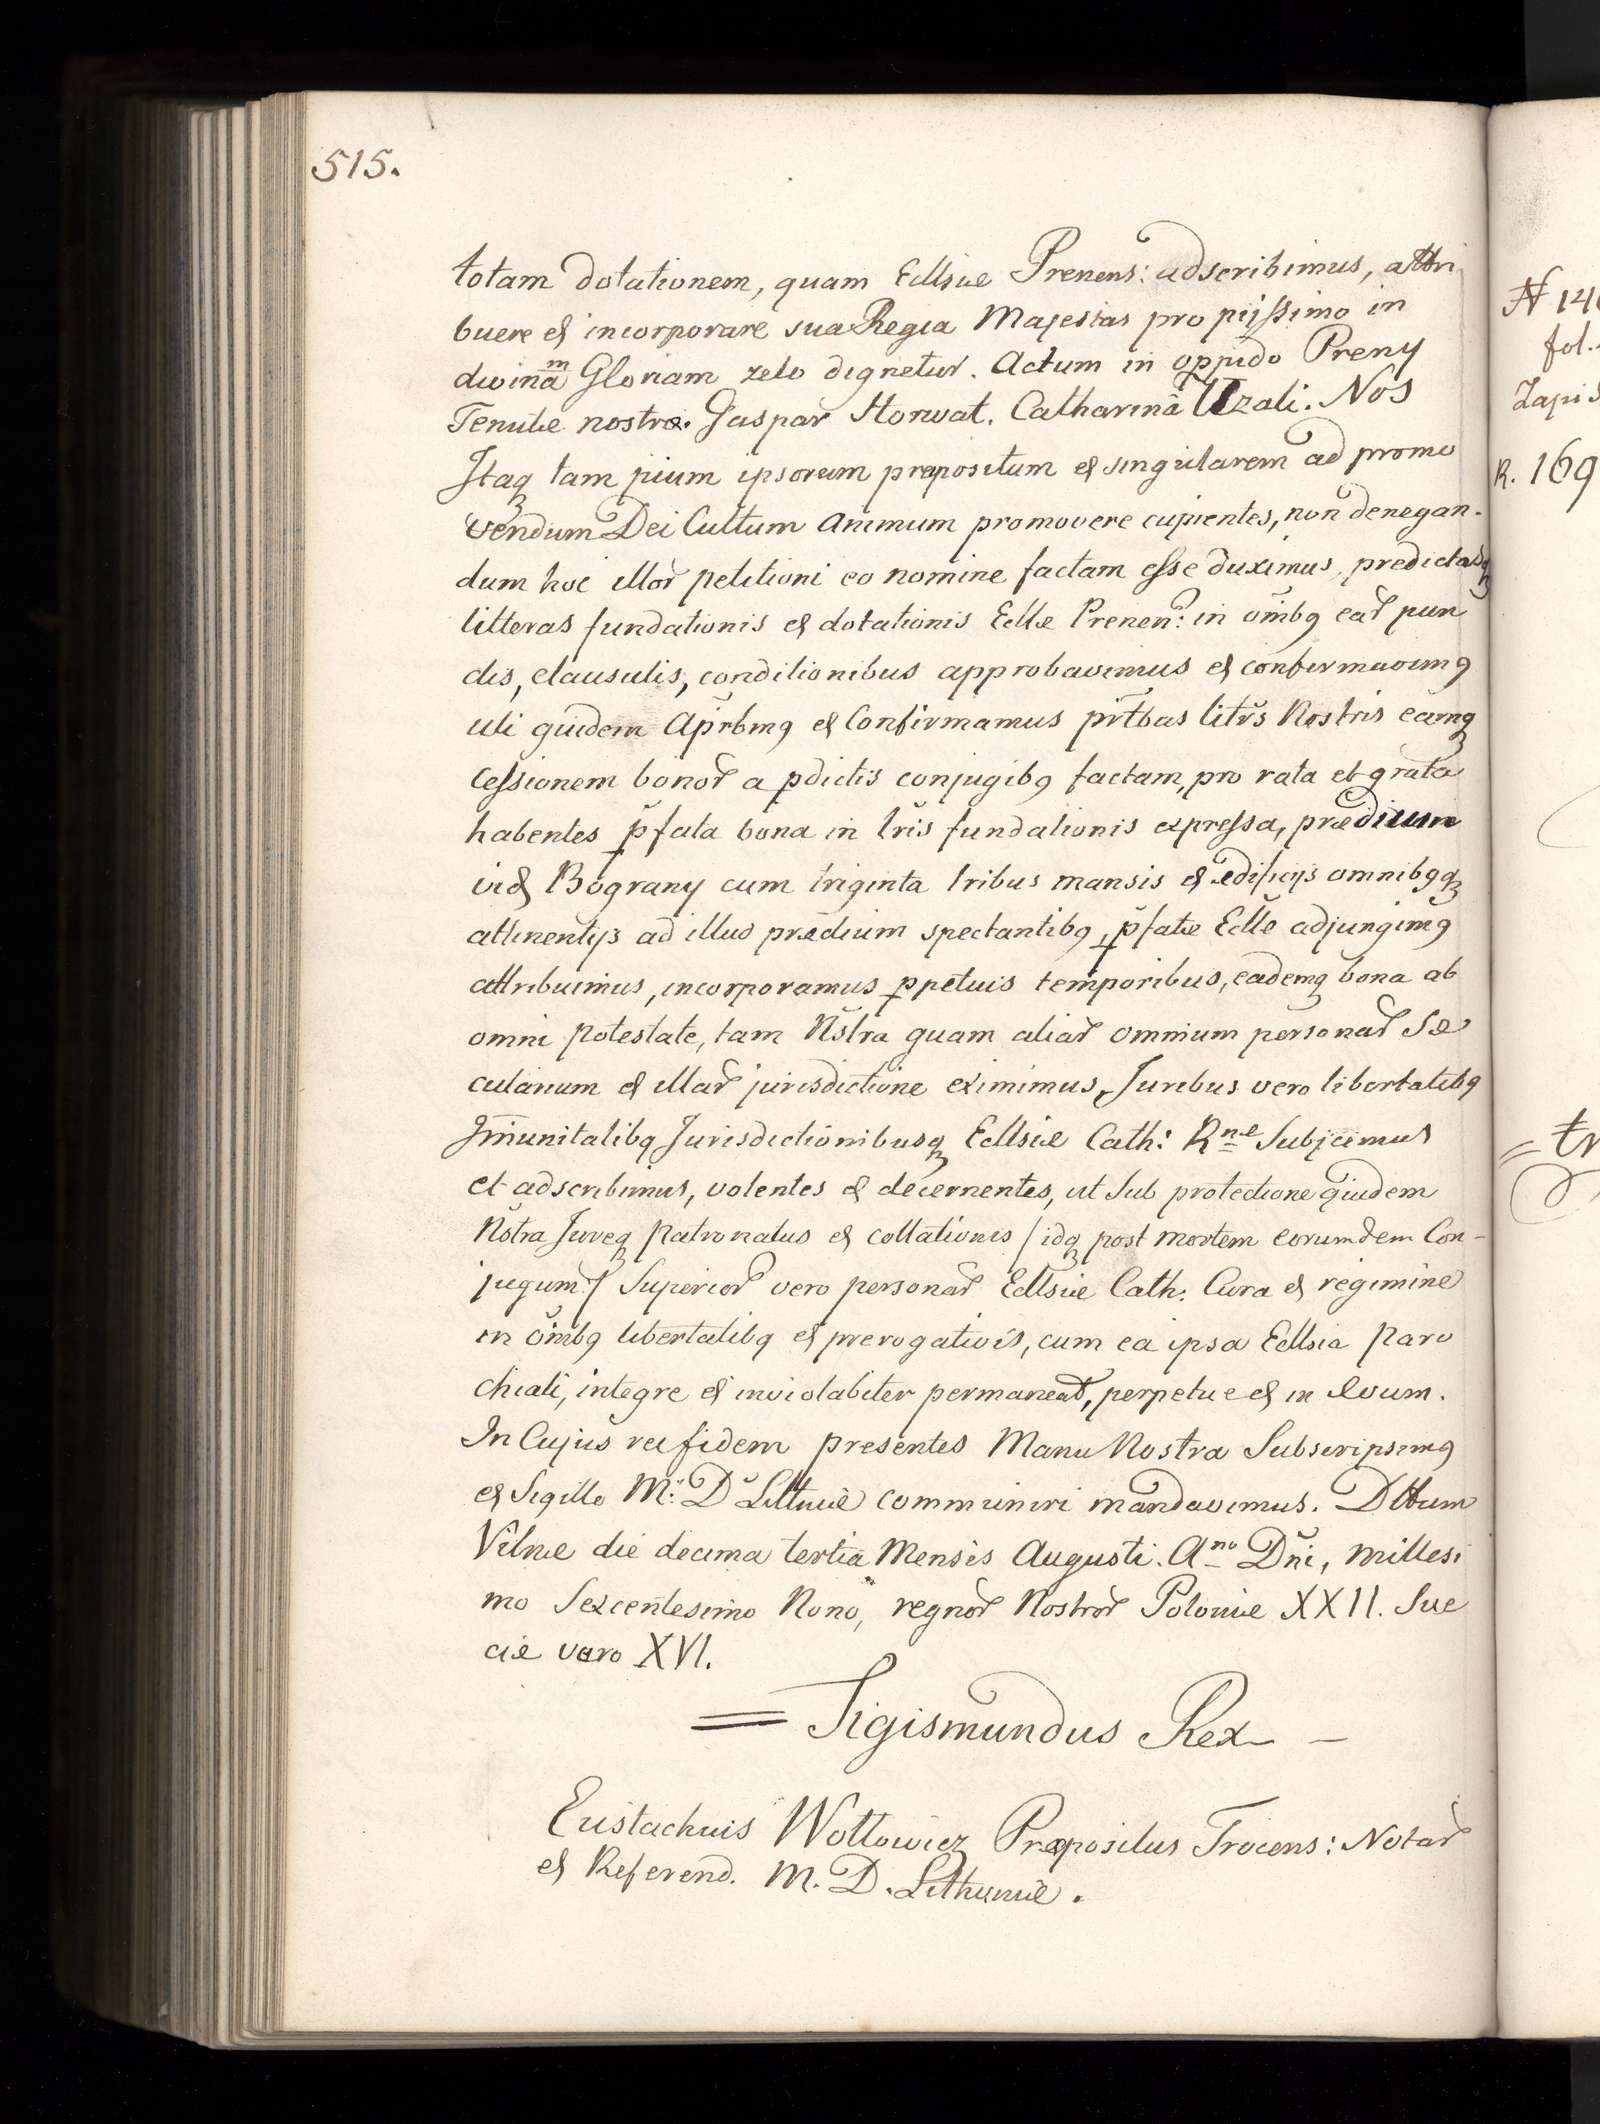 515.
totam dotationem, quam Ecllsiæ Prenens: adscribimus, attri
buere et incorporare sua Regia Majestas pro piissimo in
divinãm Gloriam zelo dignetur. Actum in oppido Preny
Tenutæ nostræ. Gaspar Horwat. Catharina Uzali. Nos
Itaq tam pium ipsorum prepositum et singularem ad promo
vendum Dei Cultum animum promovere cupientes, non denegan-
dum hoc illor petitioni eo nomine factam esse duximus, predictasq
litteras fundationis et dotationis Ecllæ Prenen: in omibq ear pun
ctis, clausulis, conditionibus approbavimus et confirmavimq
uti quidem Aprbmq et Confirmamus prtbas litrs Nostris eamq
Cessionem bonor a pdictis conjugibq factam, pro rata et grata
habentes pfata bona in lris fundationis expressa, prædium
vid Bograny cum triginta tribus mansis et ædificijs omnibqq
attinentijs ad illud prædium spectantibq, pfatæ Eclle adjungimq
attribuimus, incorporamus ppetuis temporibus, eademq bona ab
omni potestate, tam Nstra quam aliar omnium personar Sæ
cularium et illar jurisdictione eximimus, Juribus vero libertatibq
Imunitatibq Jurisdictionibusq Ecllsiæ Cath: Rnæ Subjicimus
et adscribimus, volentes et decernentes, ut Sub protectione quidem
Nstra Jureq Patronatus et collationis / idq post mortem eorumdem Con-
jugum / Superior vero personar Ecllsiæ Cath: Cura et regimine
in oimbq libertatibq et prerogativis, cum ea ipsa Ecllsia Paro
chiali, integre et inviolabiter permaneat, perpetue et in ævum.
In Cujus rei fidem presentes Manu Nostra Subscripsimq
et Sigillo M: D Littuæ communiri mandavimus. Dttum
Vilnæ die decima tertia Mensis Augusti. Ano Dni, millesi
mo Sexcentesimo Nono, regnor Nostror Poloniæ XXII. Sue
ciæ vero XVI.
= Sigismundus Rex –
Eustachius Wollowicz Præpositus Trocens: Notar
et Referend. M. D. Lithuaniæ.
N 14
fol.
Zapis
R. 169